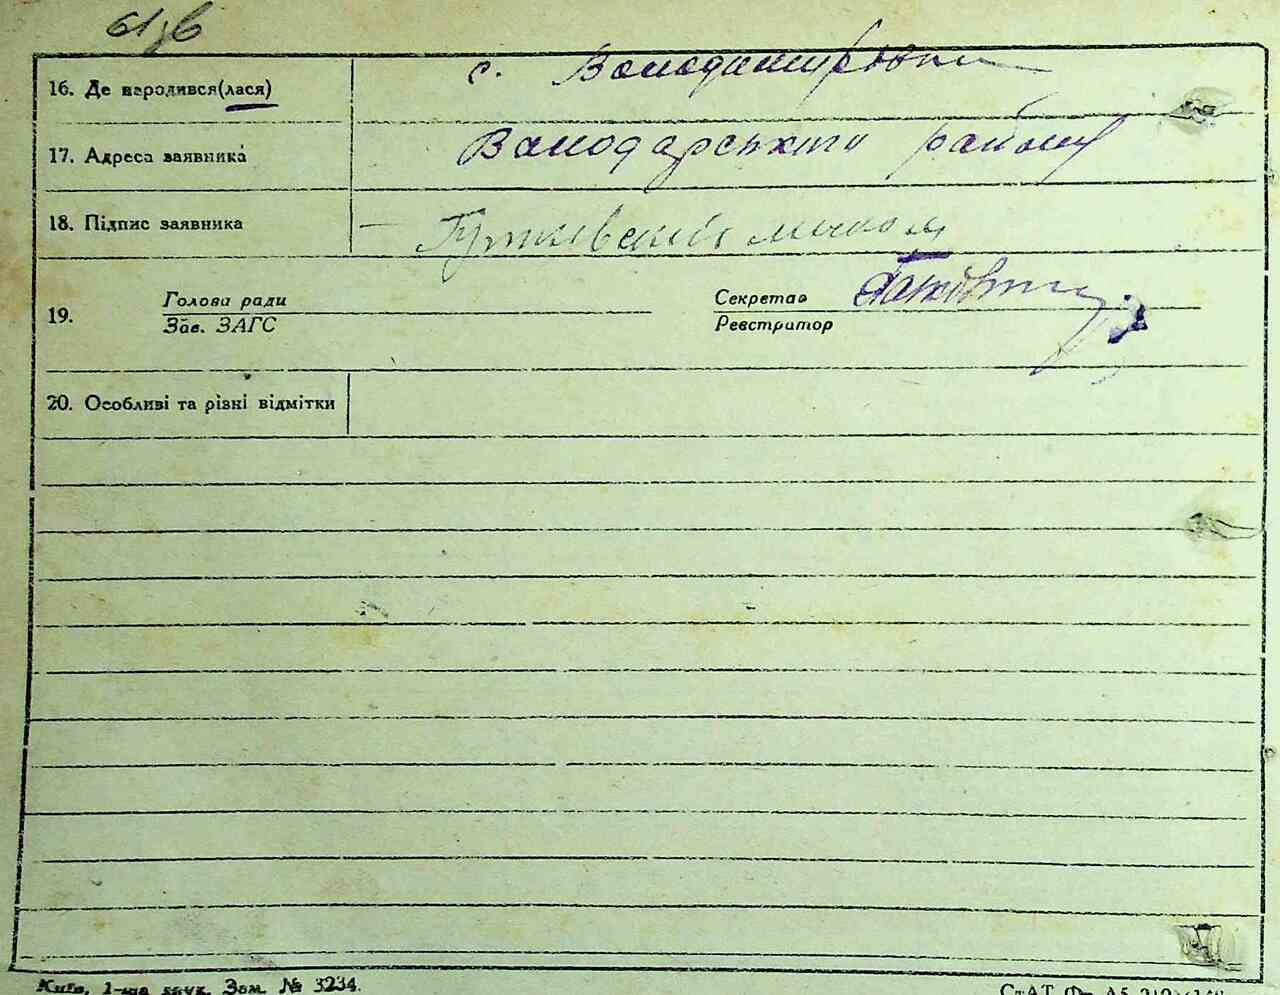 61зв
16. Де народився(лася) с. Володимировки
17. Адреса заявника Володарського району
18. Підпис заявника – Гутковський
19. Голова ради Секретар
Зав. ЗАГС Реєстратор
20. Особливі та різні відмітки
Київ, 1-ша друк. Зам. № 3234.
СтАТ Ф-